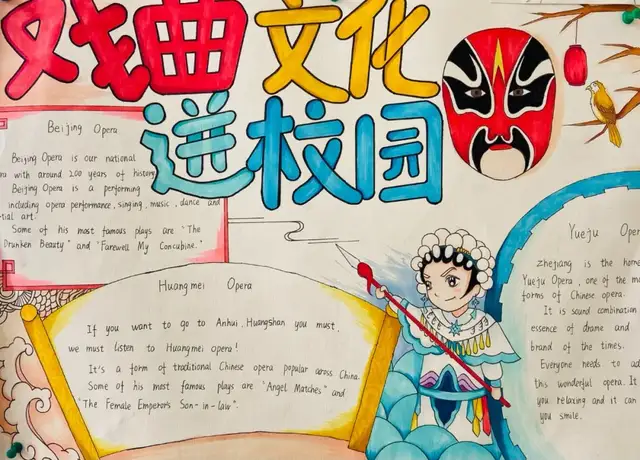 戏曲文化
进校园
Beijing Opera
Beijing Opera is our national
with around 200 years of history
Beijing Opera is a performing
including opera performance, singing, music, dance and
tial art.
Some of his most famous plays are "The
Drunken Beauty" and "Farewell My Concubine."
Huangmei Opera
If you want to go to Anhui, Huangshan you must,
we must listen to Huangmei opera!
It's a form of traditional Chinese opera popular across China.
Some of his most famous plays are "Angel Matches" and
"The Female Emperor's Son-in-law".
Yueju Oper
Zhejiang is the home
Yueju Opera, one of the mo
forms of Chinese opera.
It is sound combination
essence of drame and
brand of the times.
Everyone needs to ad
this wonderful opera. It
you relaxing and it can
you smile.